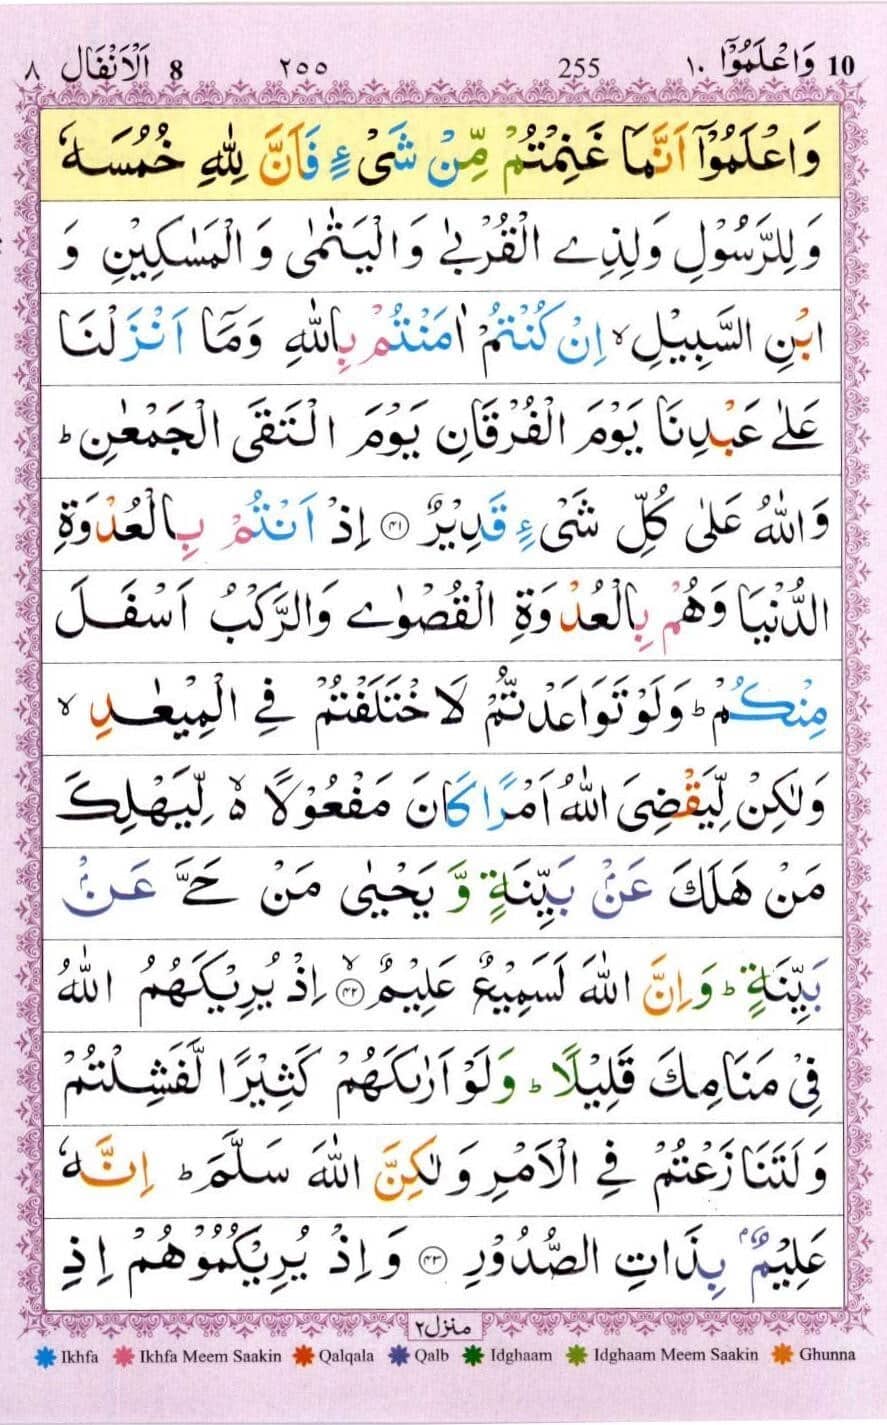 10 وَاعْلَمُوْۤا ۱۰ 255 ۲۵۵ 8 اَلْاَنْفَال ۸
وَاعْلَمُوْۤا اَنَّمَا غَنِمْتُمْ مِّنْ شَیْءٍ فَاَنَّ لِلّٰهِ خُمُسَهٗ
وَلِلرَّسُوْلِ وَلِذِی الْقُرْبٰی وَالْیَتٰمٰی وَالْمَسٰكِیْنِ وَ
ابْنِ السَّبِیْلِ ۙ اِنْ كُنْتُمْ اٰمَنْتُمْ بِاللّٰهِ وَمَاۤ اَنْزَلْنَا
عَلٰی عَبْدِنَا یَوْمَ الْفُرْقَانِ یَوْمَ الْتَقَی الْجَمْعٰنِ ؕ
وَاللّٰهُ عَلٰی كُلِّ شَیْءٍ قَدِیْرٌ ۝۴۱ اِذْ اَنْتُمْ بِالْعُدْوَةِ
الدُّنْیَا وَهُمْ بِالْعُدْوَةِ الْقُصْوٰی وَالرَّكْبُ اَسْفَلَ
مِنْكُمْ ؕ وَلَوْ تَوَاعَدْتُّمْ لَاخْتَلَفْتُمْ فِی الْمِیْعٰدِ ۙ
وَلٰكِنْ لِّیَقْضِیَ اللّٰهُ اَمْرًا كَانَ مَفْعُوْلًا ۙ۬ لِّیَهْلِكَ
مَنْ هَلَكَ عَنْۢ بَیِّنَةٍ وَّ یَحْیٰی مَنْ حَیَّ عَنْۢ
بَیِّنَةٍ ؕ وَاِنَّ اللّٰهَ لَسَمِیْعٌ عَلِیْمٌ ۝۴۲ۙ اِذْ یُرِیْكَهُمُ اللّٰهُ
فِیْ مَنَامِكَ قَلِیْلًا ؕ وَلَوْ اَرٰىكَهُمْ كَثِیْرًا لَّفَشِلْتُمْ
وَلَتَنَازَعْتُمْ فِی الْاَمْرِ وَلٰكِنَّ اللّٰهَ سَلَّمَ ؕ اِنَّهٗ
عَلِیْمٌۢ بِذَاتِ الصُّدُوْرِ ۝۴۳ وَاِذْ یُرِیْكُمُوْهُمْ اِذِ
منزل۲
Ikhfa Ikhfa Meem Saakin Qalqala Qalb Idghaam Idghaam Meem Saakin Ghunna